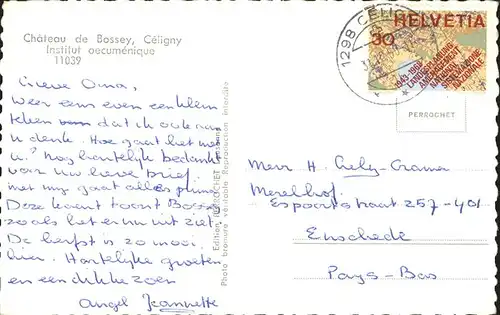 Château de Bossey, Céligny
Institut oecuménique
11039
Lieve Oma,
Weer eens even een klein
teken dat ik ook aan
u denk. Hoe gaat het met
u? Nog hartelijk bedankt
voor uw lieve brief.
Met mij gaat alles prima.
Deze kaart toont Bossey
zoals het er nu uit ziet.
De herfst is zo mooi
hier. Hartelijke groeten
en een dikke zoen
Jeannette
Edition PERROCHET Lausanne
Photo bromure véritable Reproduction interdite
1298 CÉLIGNY
HELVETIA
30
1943-1968
LANDESPLANUNG
AMENAGEMENT
NATIONAL
NAZIONALE
PERROCHET
Mevr H. Cramer
Merelhof.
Espoortstraat 257-401
Enschede
Pays-Bas